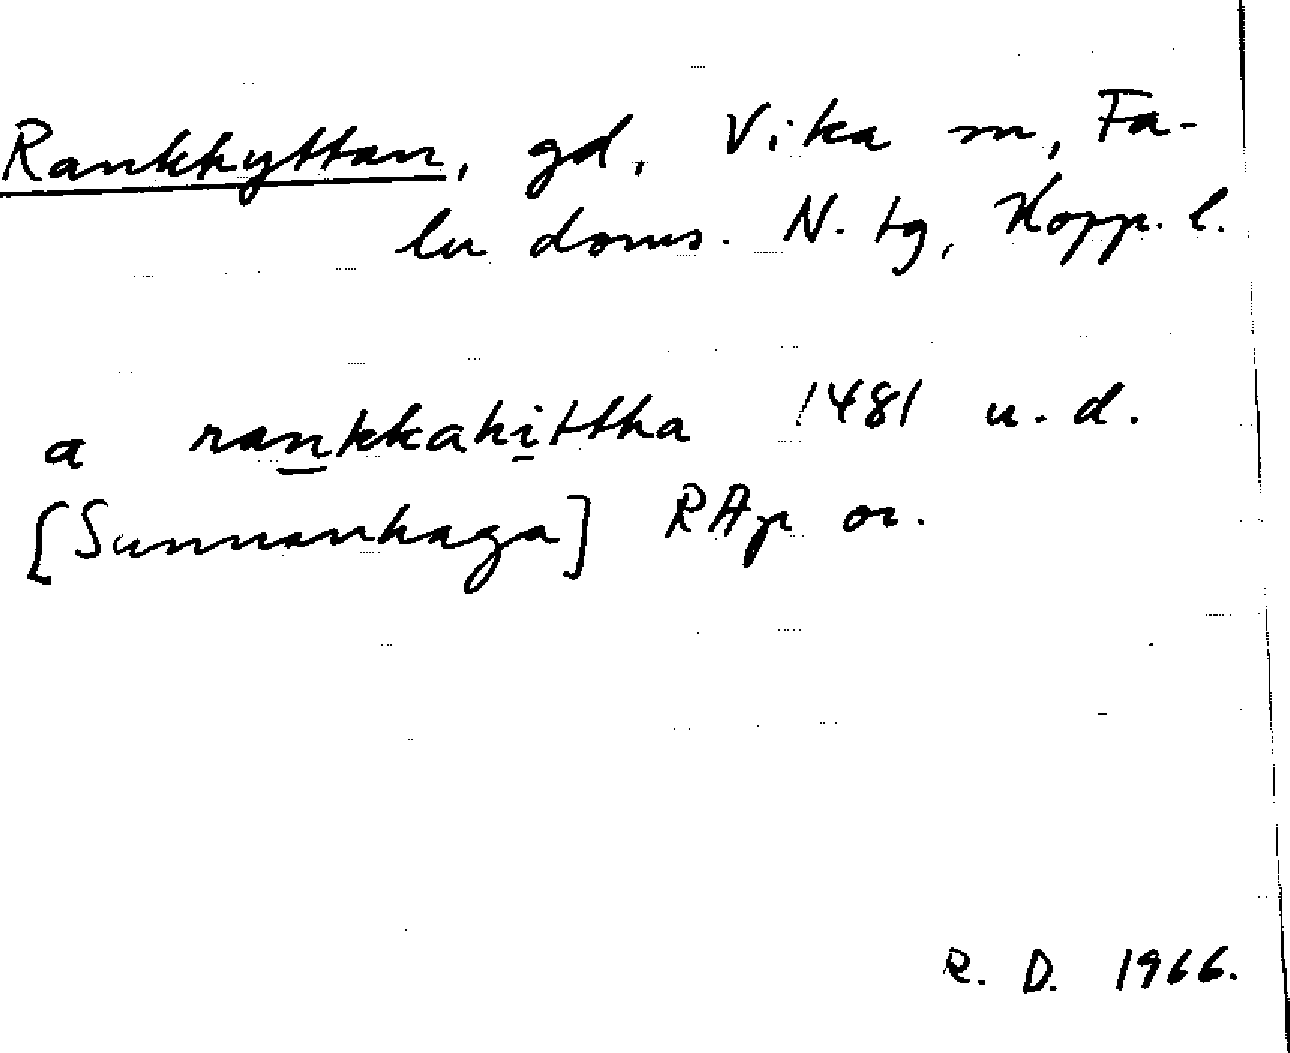 Rankhyttan, gd, Vika sn, Fa-
lu doms. N. tg, Kopp. l.
a rankkahittha 1481 u. d.
[Sunnanhaga] RAp or.
R. D. 1966.